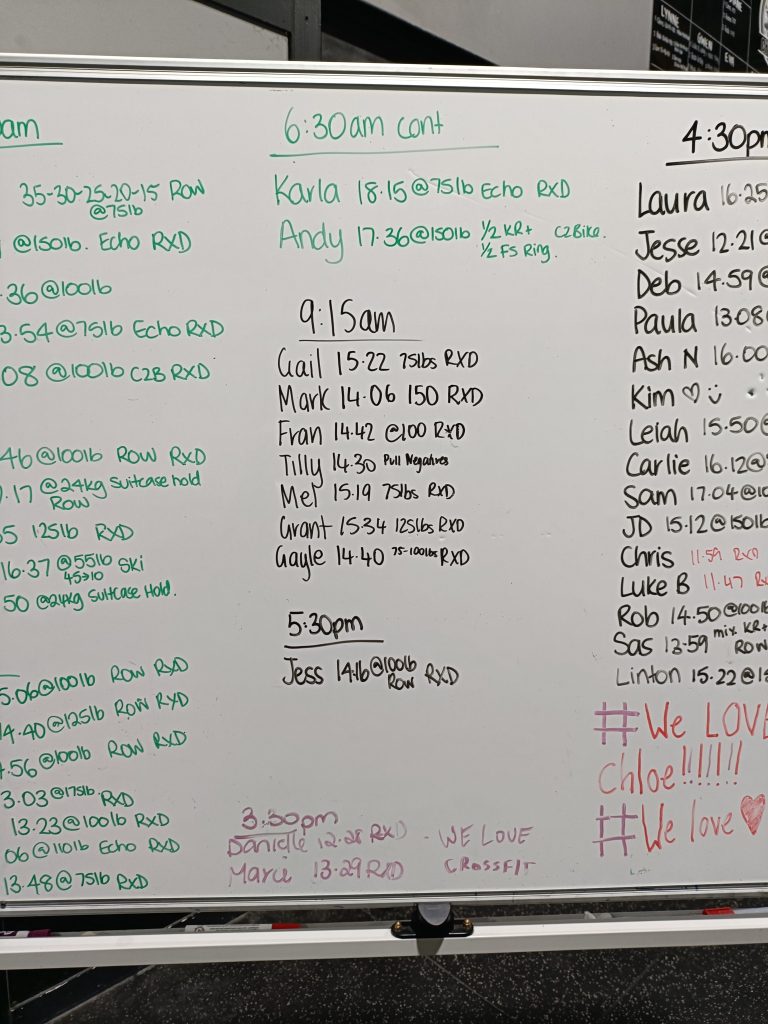 LYNNE
OWEN
EM
am
35-30-25-20-15 Row
@75lb
@150lb. Echo RXD
.36@100lb
3.54@75lb Echo RXD
08 @100lb C2B RXD
46@100lb Row RXD
.17 @24kg Suitcase hold
Row
5 125lb RXD
16.37 @55lb Ski
45→10
50 @24kg Suitcase Hold.
5.06@100lb Row RXD
4.40@125lb Row RXD
.56@100lb Row RXD
3.03@175lb RXD
13.23@100lb RXD
06@110lb Echo RXD
13.48@75lb RXD
6:30am cont
Karla 18.15@75lb Echo RXD
Andy 17.36@150lb 1/2 KR+ C2Bike.
1/2 FS Ring.
9:15am
Gail 15.22 75lbs RXD
Mark 14.06 150 RXD
Fran 14.42 @100 RXD
Tilly 14.30 Pull Negatives
Mel 15.19 75lbs RXD
Grant 15.34 125lbs RXD
Gayle 14.40 75-100lbs RXD
5:30pm
Jess 14.16@100lb
Row RXD
3.30pm
Danielle 12.28 RXD - WE LOVE
Marie 13.29 RXD CROSSFIT
4:30pm
Laura 16.25
Jesse 12.21@
Deb 14.59@
Paula 13.08
Ash N 16.00
Kim ♡ ☺
Leiah 15.50@
Carlie 16.12@
Sam 17.04@10
JD 15.12@150lb
Chris 11.59 RXD
Luke B 11.47 RX
Rob 14.50@100lb
Sas 13.59 mix KR+
Row
Linton 15.22@1
#We LOVE
Chloe!!!!!!!
#We love ♥